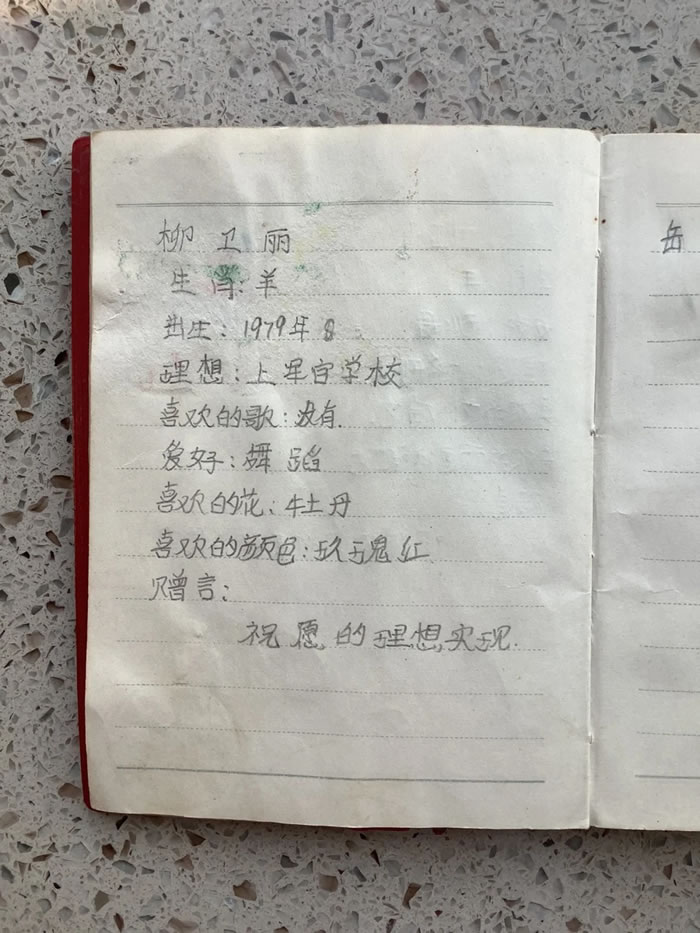 柳卫丽
生肖:羊
出生:1979年8
理想:上军官学校
喜欢的歌:没有.
爱好:舞蹈
喜欢的花:牡丹
喜欢的颜色:玫瑰红
赠言:
祝愿的理想实现.
岳